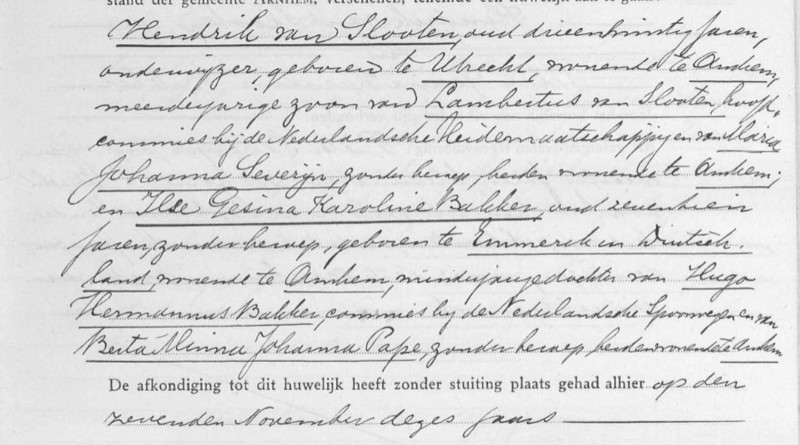 stand der gemeente ARNHEM, verschenen, teneinde een huwelijk aan te gaan:
Hendrik van Slooten, oud drieentwintig jaren,
onderwijzer, geboren te Utrecht, wonende te Arnhem,
meerderjarige zoon van Lambertus van Slooten, hoofd-
commies bij de Nederlandsche Heidemaatschappij en van Maria
Johanna Severijn, zonder beroep, beiden wonende te Arnhem;
en Ilse Gesina Karoline Bakker, oud zeventien
jaren, zonder beroep, geboren te Emmerik in Duitsch-
land, wonende te Arnhem, minderjarige dochter van Hugo
Hermannus Bakker, commies bij de Nederlandsche Spoorwegen en van
Berta Minna Johanna Pape, zonder beroep, beiden wonende te Arnhem
De afkondiging tot dit huwelijk heeft zonder stuiting plaats gehad alhier op den
zevenden November dezes jaars